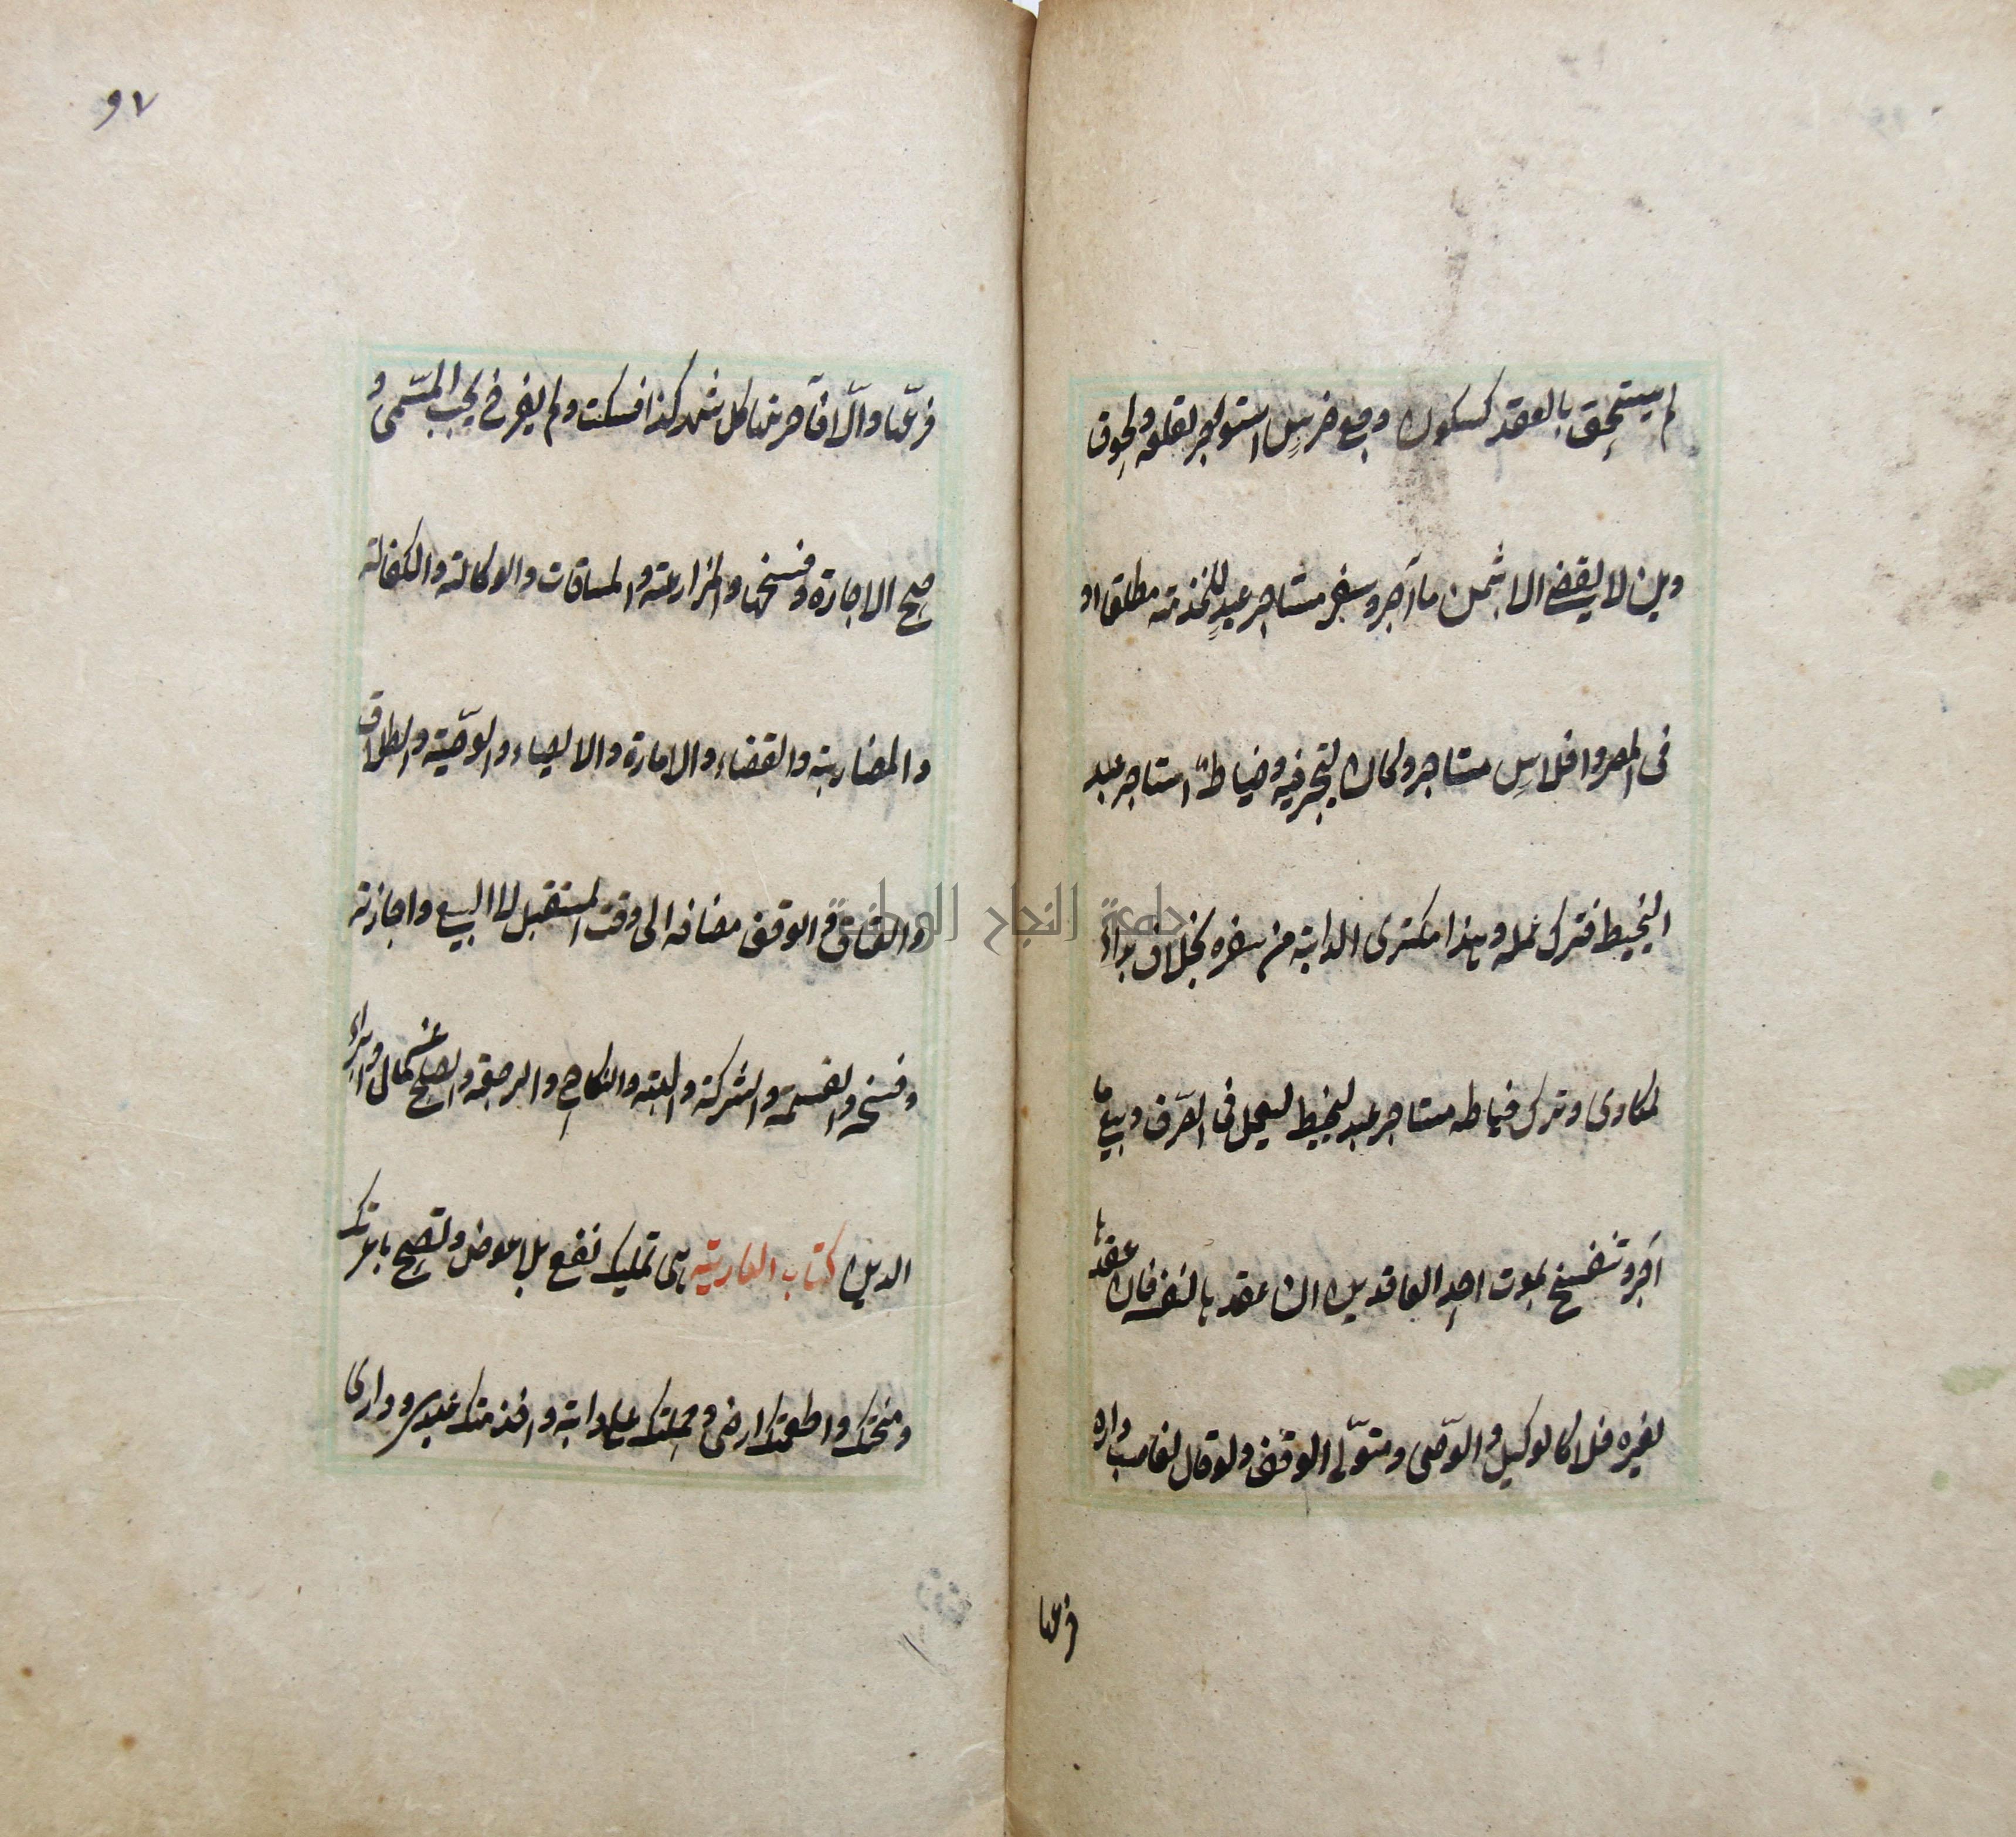 لم يستحق بالعقد كسكون وجع ضرسٍ استوجر لقلعه ولحوق
دين لا يقضى الا بثمن ما آجر وسفر مستاجر عبدٍ للخدمة مطلقا او
فى المصر وافلاسِ مستاجر دكان ليتجر فيه وخياطً استاجر عبد
ليخيط فترك عمله وبدا مكترى الدابة من سفره بخلاف بداء
لمكارى وترك خياطه مستاجر عبد ليخيط ليعمل فى الصرف وبيع ما
آجر وتنفسخ بموت احدِ العاقدين ان عقد بالنفسه فان عقدها
لغيره فلا كالوكيل والوصّى ومتولّى الوقف ولو قال لغاصب داره
فرغها
٩٧
فرغّها والّا فآجرتها كل شهر كذا فسكت ولم يفرغ يجب المسّمى و
صح الاجارة وفسخها والمزارعة والمساقات والوكالة والكفالة
والمضاربة والقضاء والامارة والايصاء والوصّية والطلاق
والعتاق والوقف مضافه الى وقت المستقبل لا البيع واجازته
وفسخه والقسمة والشركة والهبة والنكاح والرجعة والصلح عن مال وابراء
الدين كتاب العارية هى تمليك نفع بلا عوض وتصح باعرتك
ومنحتك واطعمتك ارضى وحملتك على دابة واخدمتك عبدى ودارى
جامعة النجاح الوطنية